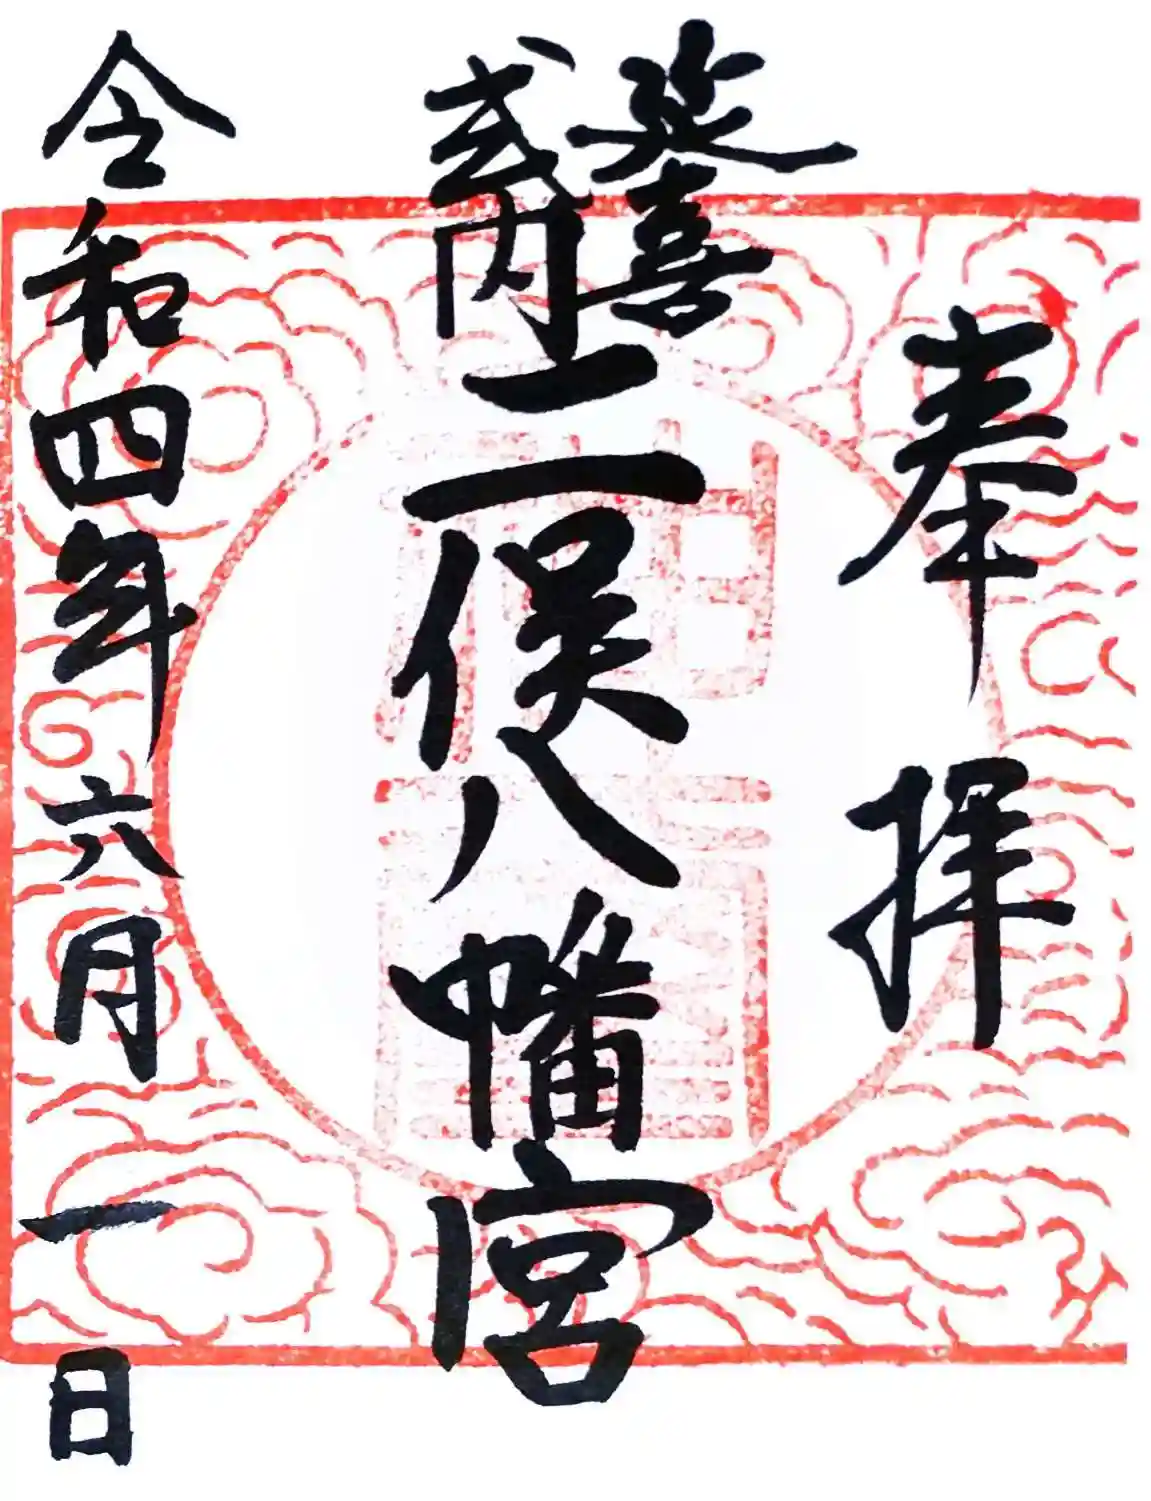 奉拝
延喜
式内
二俣八幡宮
令和四年六月一日